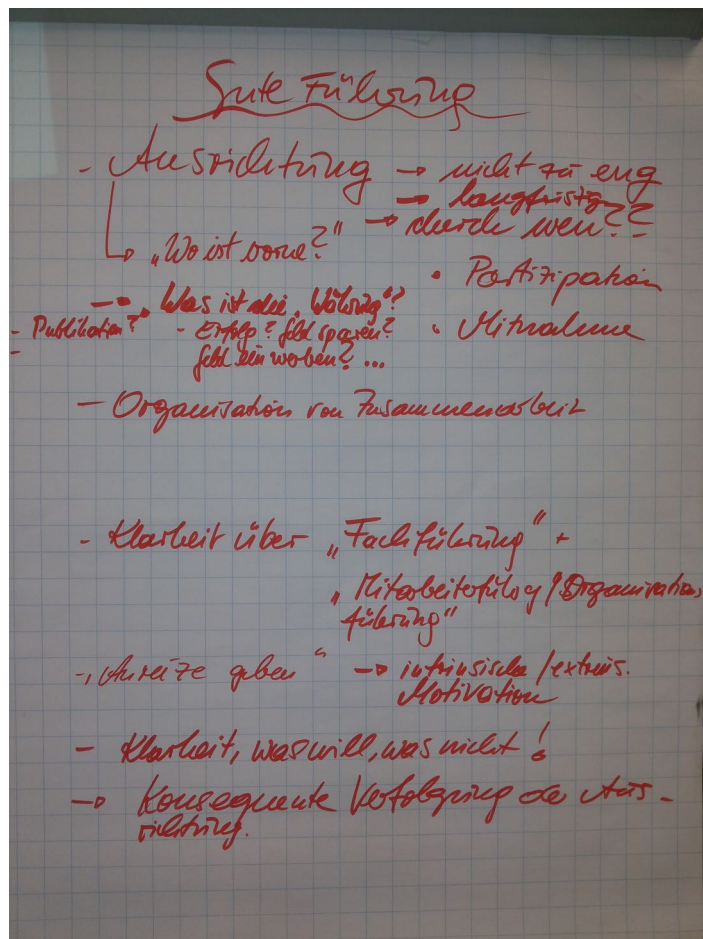 Gute Führung
- Ausrichtung → nicht zu eng
→ langfristig
→ durch wen??
↳ „Wo ist vorne?"
• Partizipation
→ „Was ist die „Währung"?
• Mitnahme
- Publikation? - Erfolg? Geld sparen?
-
Geld einwerben? ...
- Organisation von Zusammenarbeit
- Klarheit über „Fachführung" +
„Mitarbeiterführg/Organisations
führung"
- „Anreize geben" → intrinsische/extrins.
Motivation
- Klarheit, was will, was nicht!
→ Konsequente Verfolgung der Aus-
richtung.